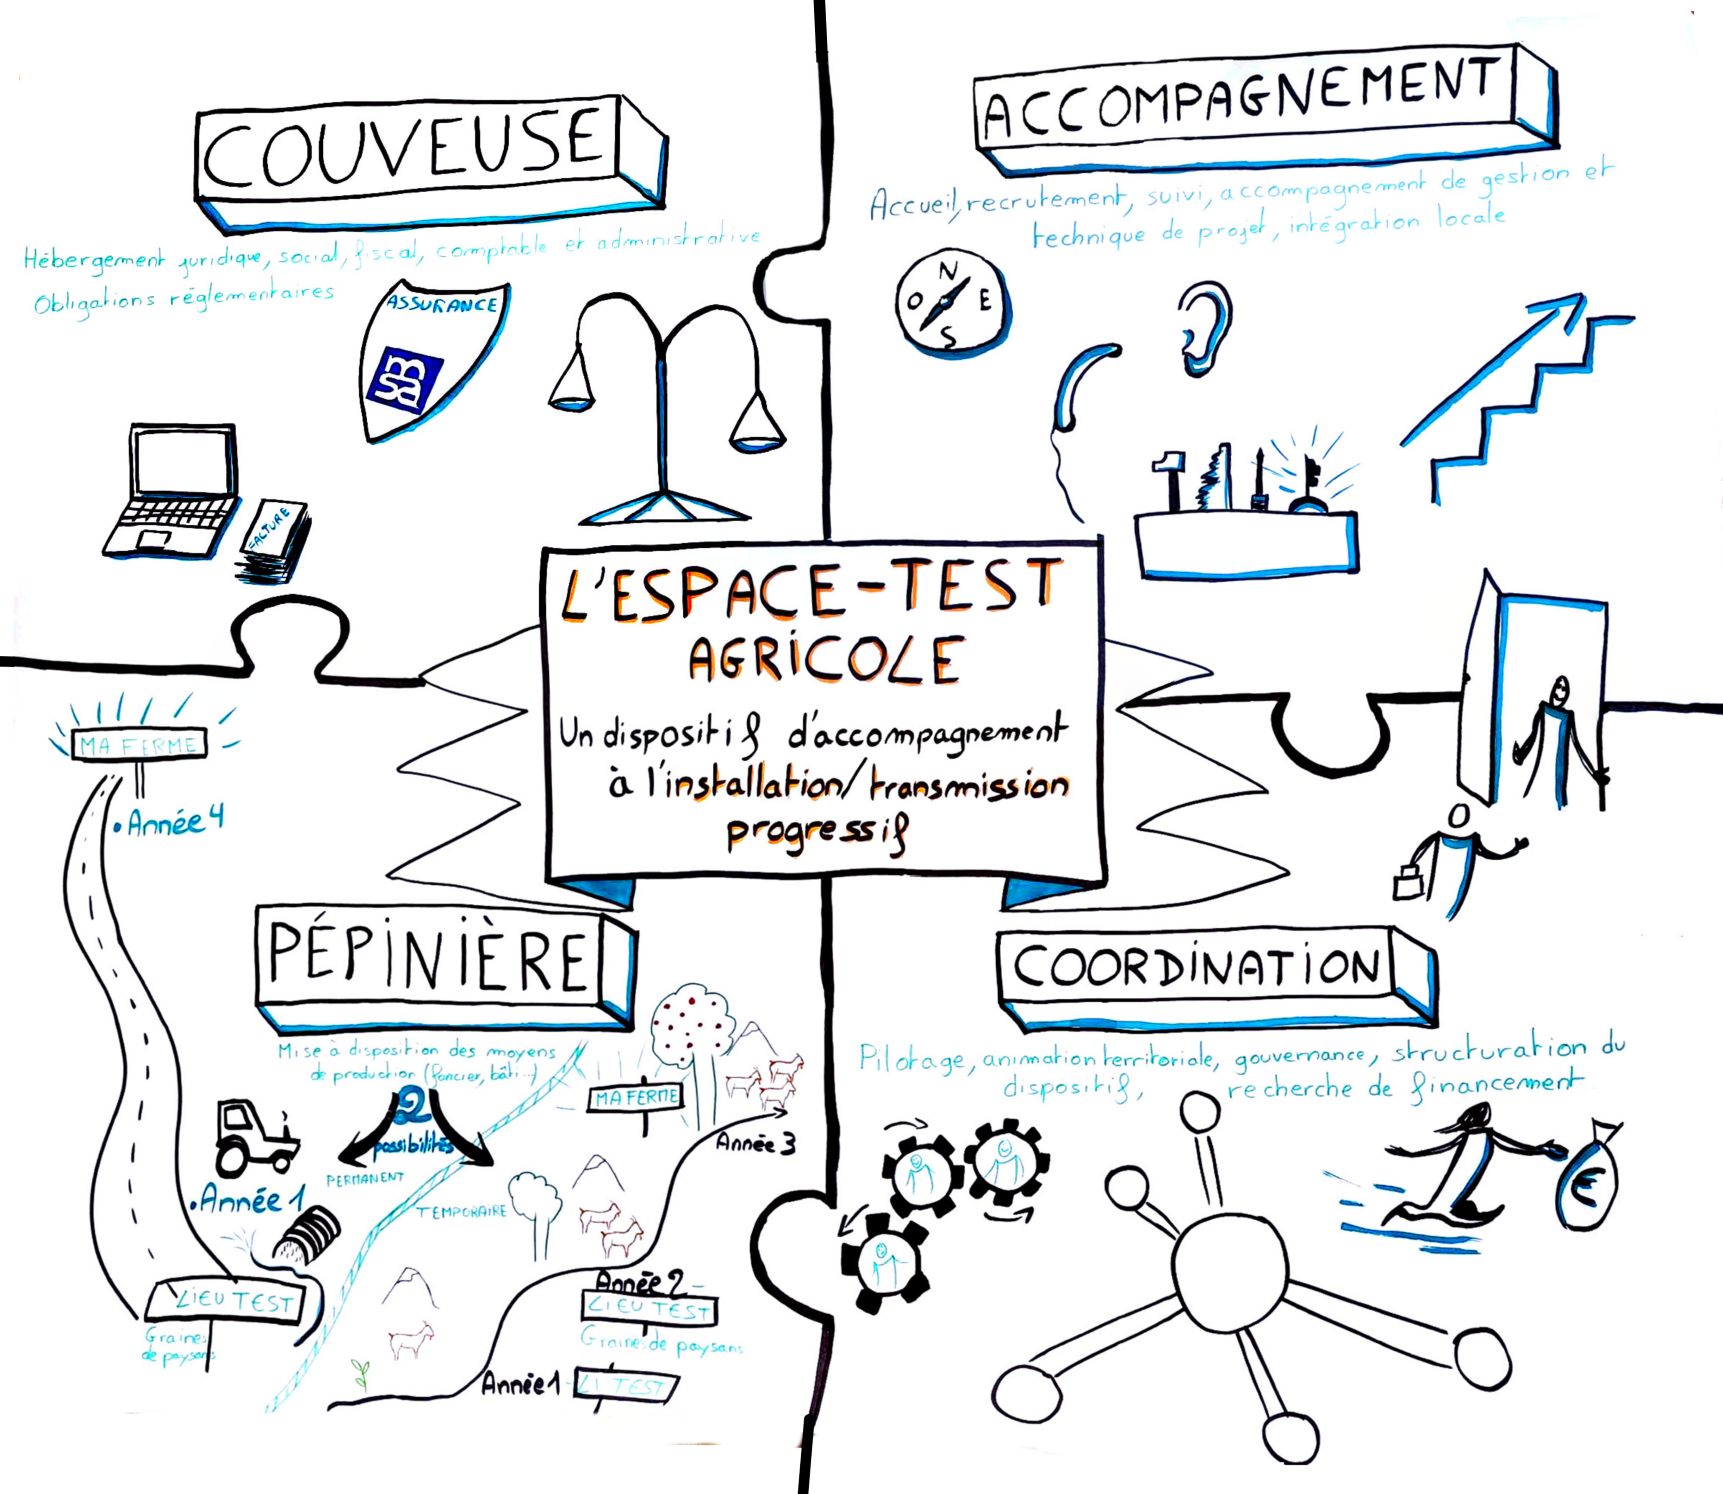 COUVEUSE
Hébergement juridique, social, fiscal, comptable et administrative
Obligations réglementaires
ASSURANCE
msa
FACTURE
ACCOMPAGNEMENT
Accueil, recrutement, suivi, accompagnement de gestion et
technique de projet, intégration locale
N
O E
S
L'ESPACE-TEST
AGRICOLE
Un dispositif d'accompagnement
à l'installation/transmission
progressif
MA FERME
• Année 4
PÉPINIÈRE
Mise à disposition des moyens
de production (foncier, bâti...)
2
possibilités
PERMANENT
TEMPORAIRE
• Année 1
LIEU TEST
Graines
de paysans
MA FERME
Année 3
Année 2
LIEU TEST
Graines de paysans
Année 1
LI TEST
COORDINATION
Pilotage, animation territoriale, gouvernance, structuration du
dispositif, recherche de financement
€